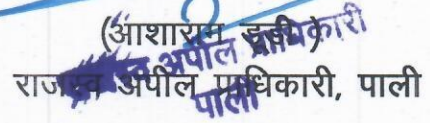 (आशाराम डूडी)
राजस्व अपील प्राधिकारी, पाली
राजस्व अपील प्राधिकारी
पाली